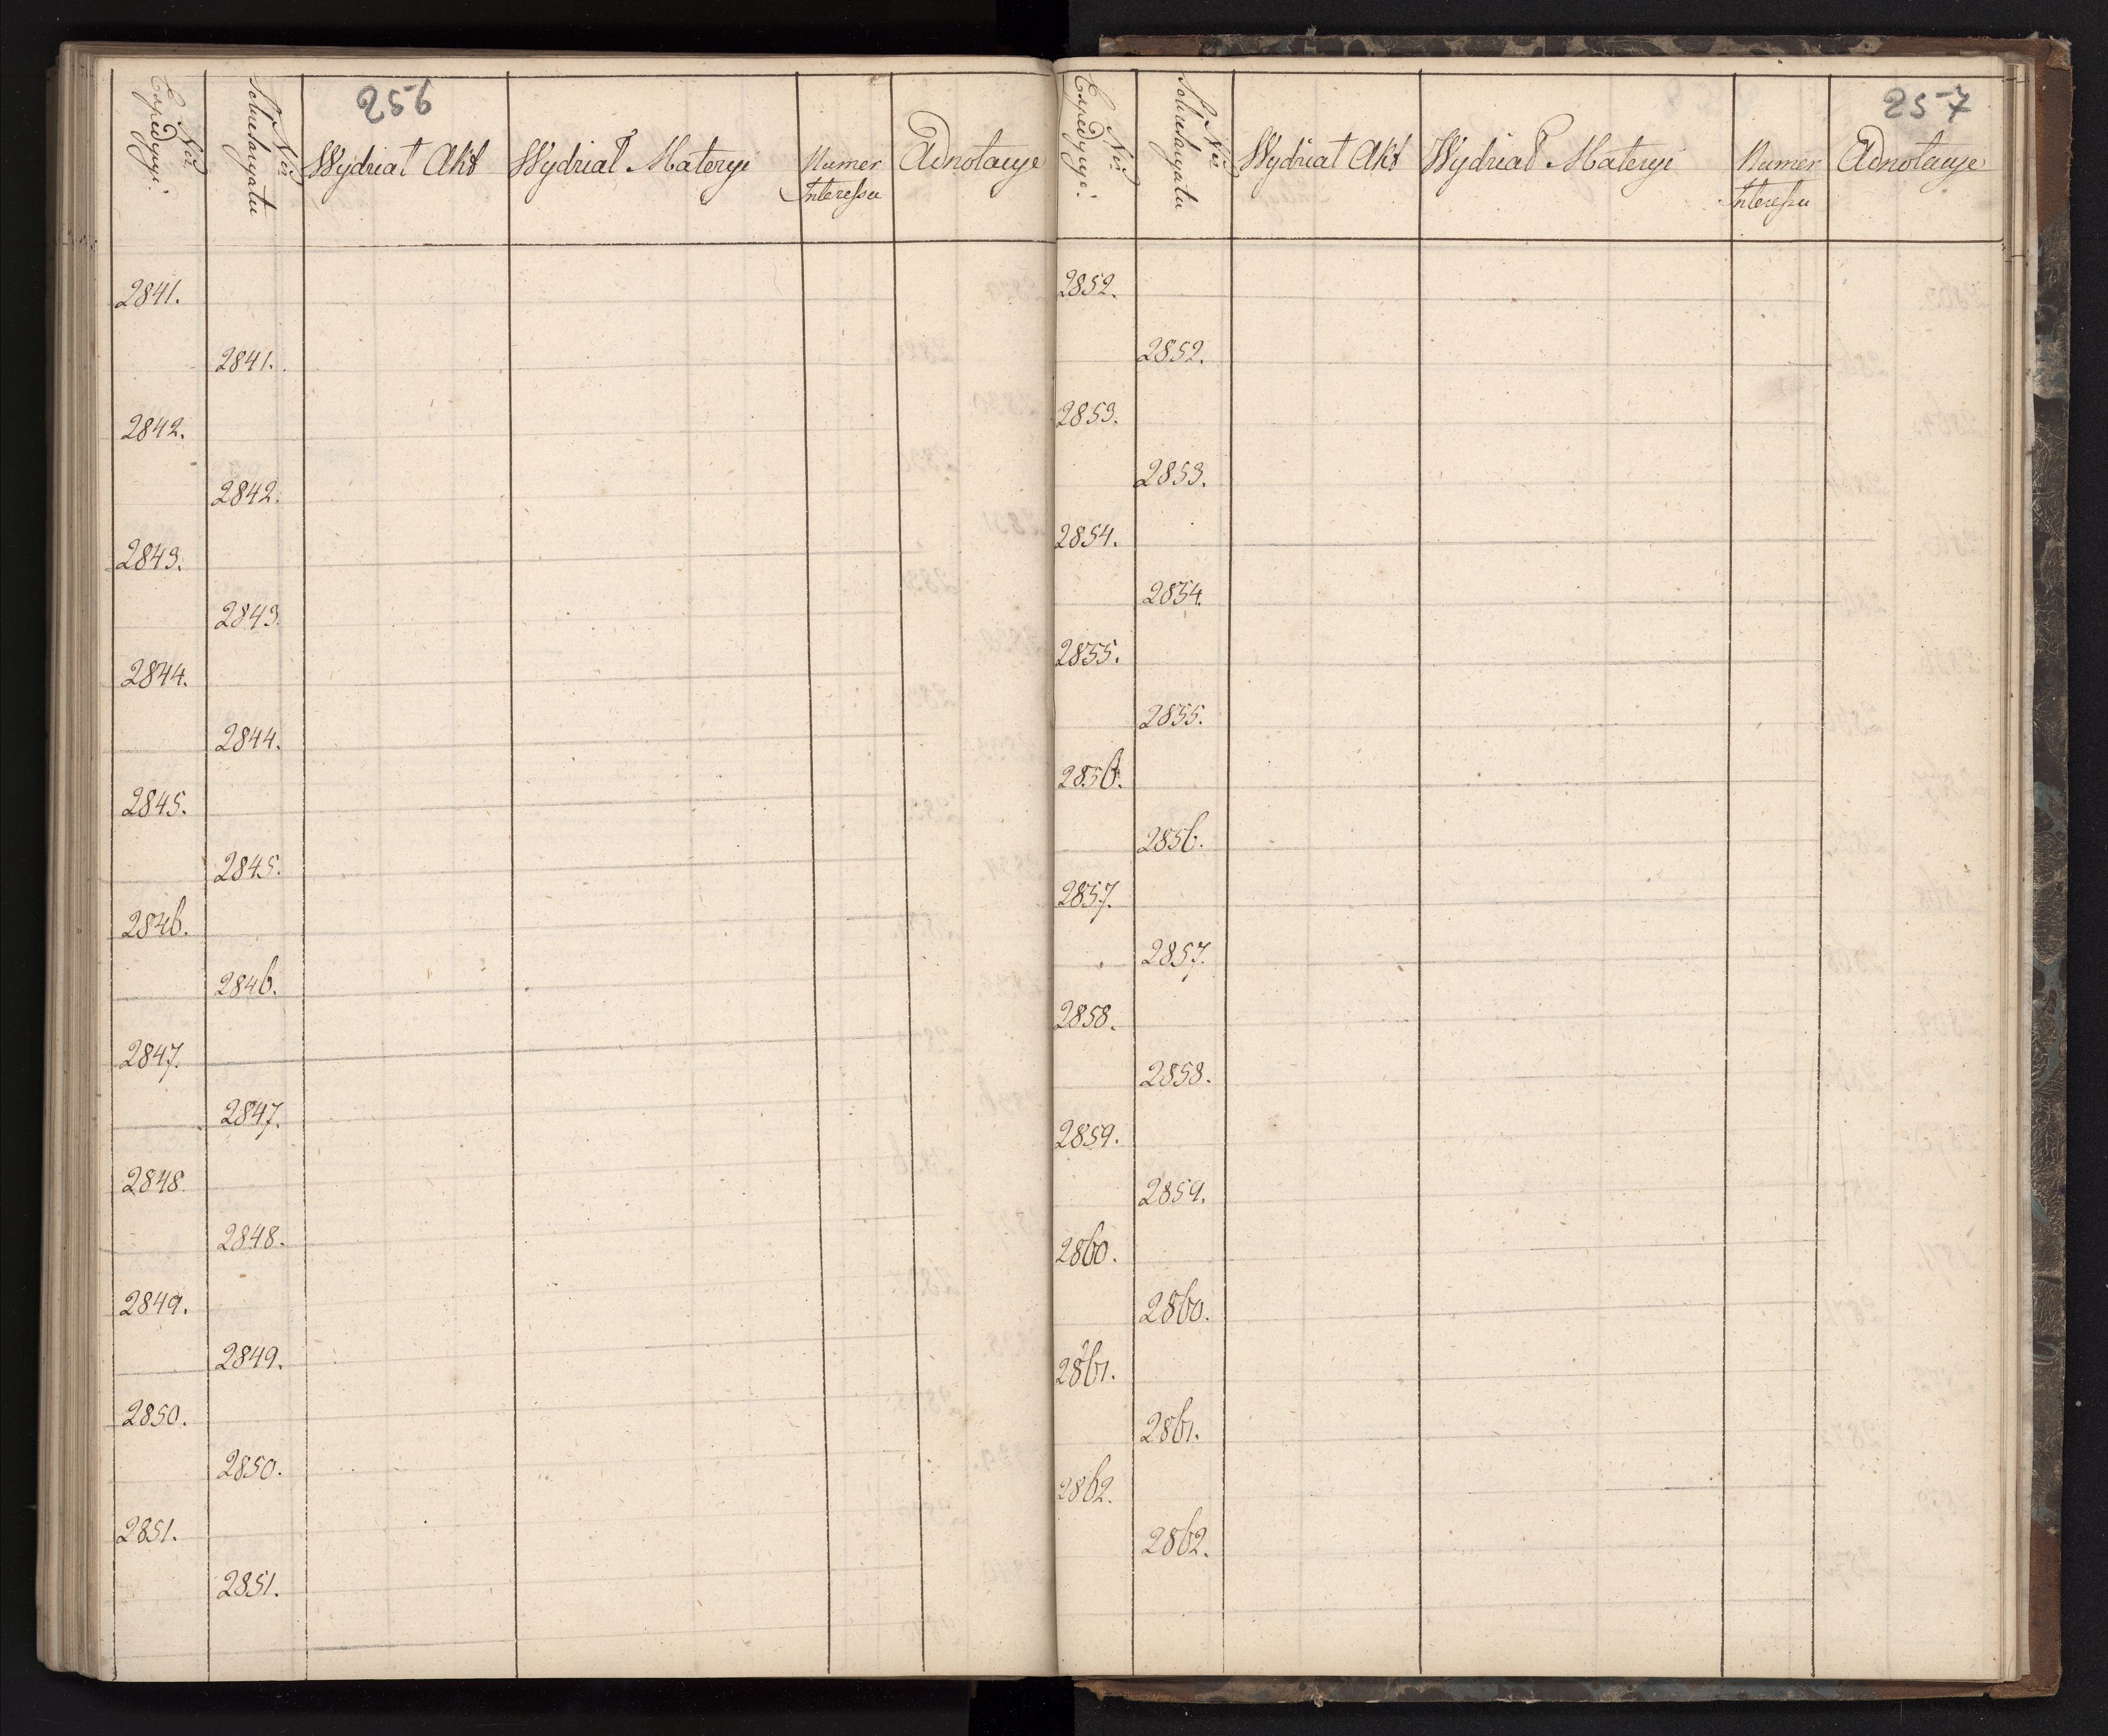 256
Nro
Expedycyi.
Nro
Wydział Akt
Wydział Materyi
Numer
Interessu
Adnotacye
2841.
2841.
2842.
2842.
2843.
2843.
2844.
2844.
2845.
2845.
2846.
2846.
2847.
2847.
2848
2848.
2849.
2849.
2850.
2850.
2851.
2851.
257
Nro
Expedycyi.
Nro
Wydział Akt
Wydział Materyi
Numer
Interessu
Adnotacye
2852.
2852.
2853.
2853.
2854.
2854.
2855.
2855.
2856.
2856.
2857.
2857.
2858.
2858.
2859.
2859.
2860.
2860.
2861.
2861.
2862.
2862.